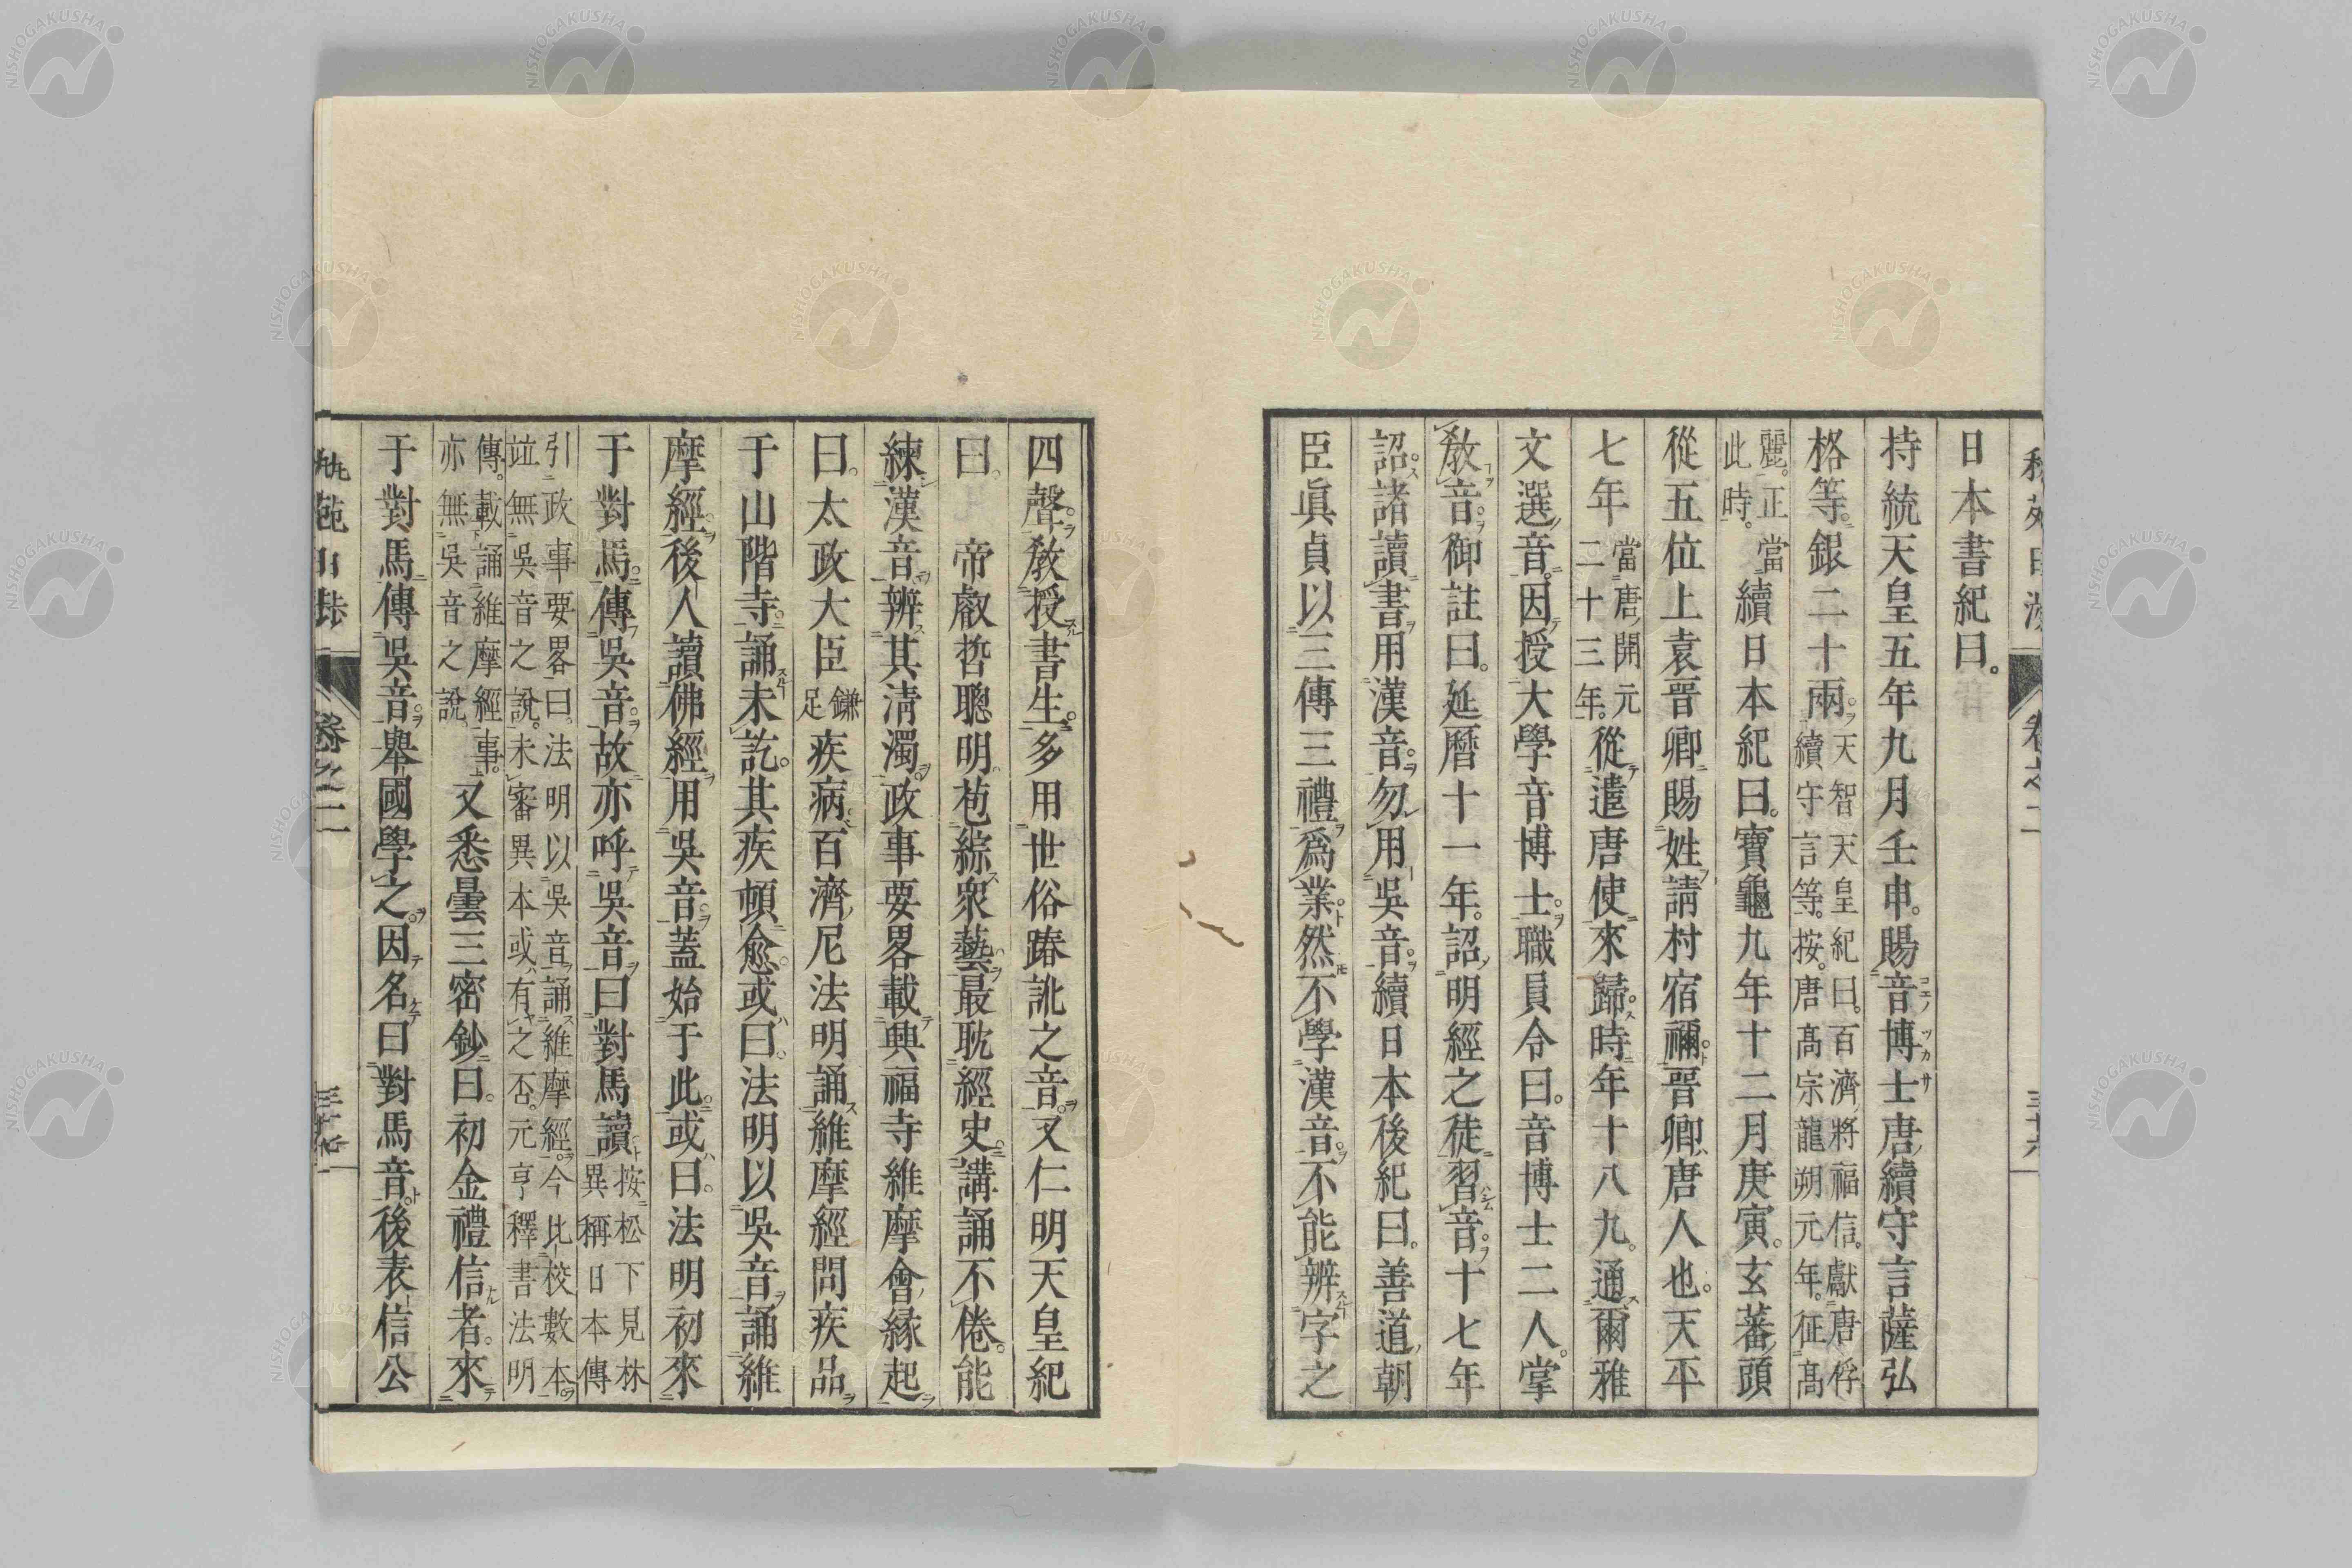 日本書紀曰。
持統天皇五年九月壬申。賜音博士唐續守言薩弘
格等。銀二十兩。天智天皇紀曰。百濟將福信。獻唐俘
續守言等。按。唐高宗龍朔元年。征高
麗。正當
此時。續日本紀曰。寶龜九年十二月庚寅。玄蕃頭
從五位上袁晉卿賜姓請村宿禰。晉卿唐人也。天平
七年當唐開元
二十三年。從遣唐使來歸。時年十八九。通爾雅
文選音。因授大學音博士。職員令曰。音博士二人。掌
敎音。御註曰。延曆十一年。詔明經之徒習音。十七年
詔。諸讀書用漢音。勿用吳音。續日本後紀曰。善道朝
臣眞貞以三傳三禮爲業。然不學漢音。不能辨字之
四聲。敎授書生。多用世俗踳訛之音。又仁明天皇紀
曰。帝叡哲聰明。苞綜衆藝。最耽經史。講誦不倦。能
練漢音。辨其淸濁。政事要畧載興福寺維摩會緣起
曰。太政大臣鎌
足疾病。百濟尼法明誦維摩經問疾品
于山階寺。誦未訖。其疾頓愈。或曰。法明以吳音誦維
摩經。後人讀佛經用吳音。蓋始于此。或曰。法明初來
于對馬。傳吳音。故亦呼吳音曰對馬讀。按松下見林
異稱日本傳
引政事要畧曰。法明以吳音誦維摩經。今比校數本。
竝無吳音之說。未審異本或有之否。元亨釋書法明
傳。載誦維摩經事。
亦無吳音之說。又悉曇三密鈔曰。初金禮信者。來
于對馬。傳吳音。擧國學之。因名曰對馬音。後表信公